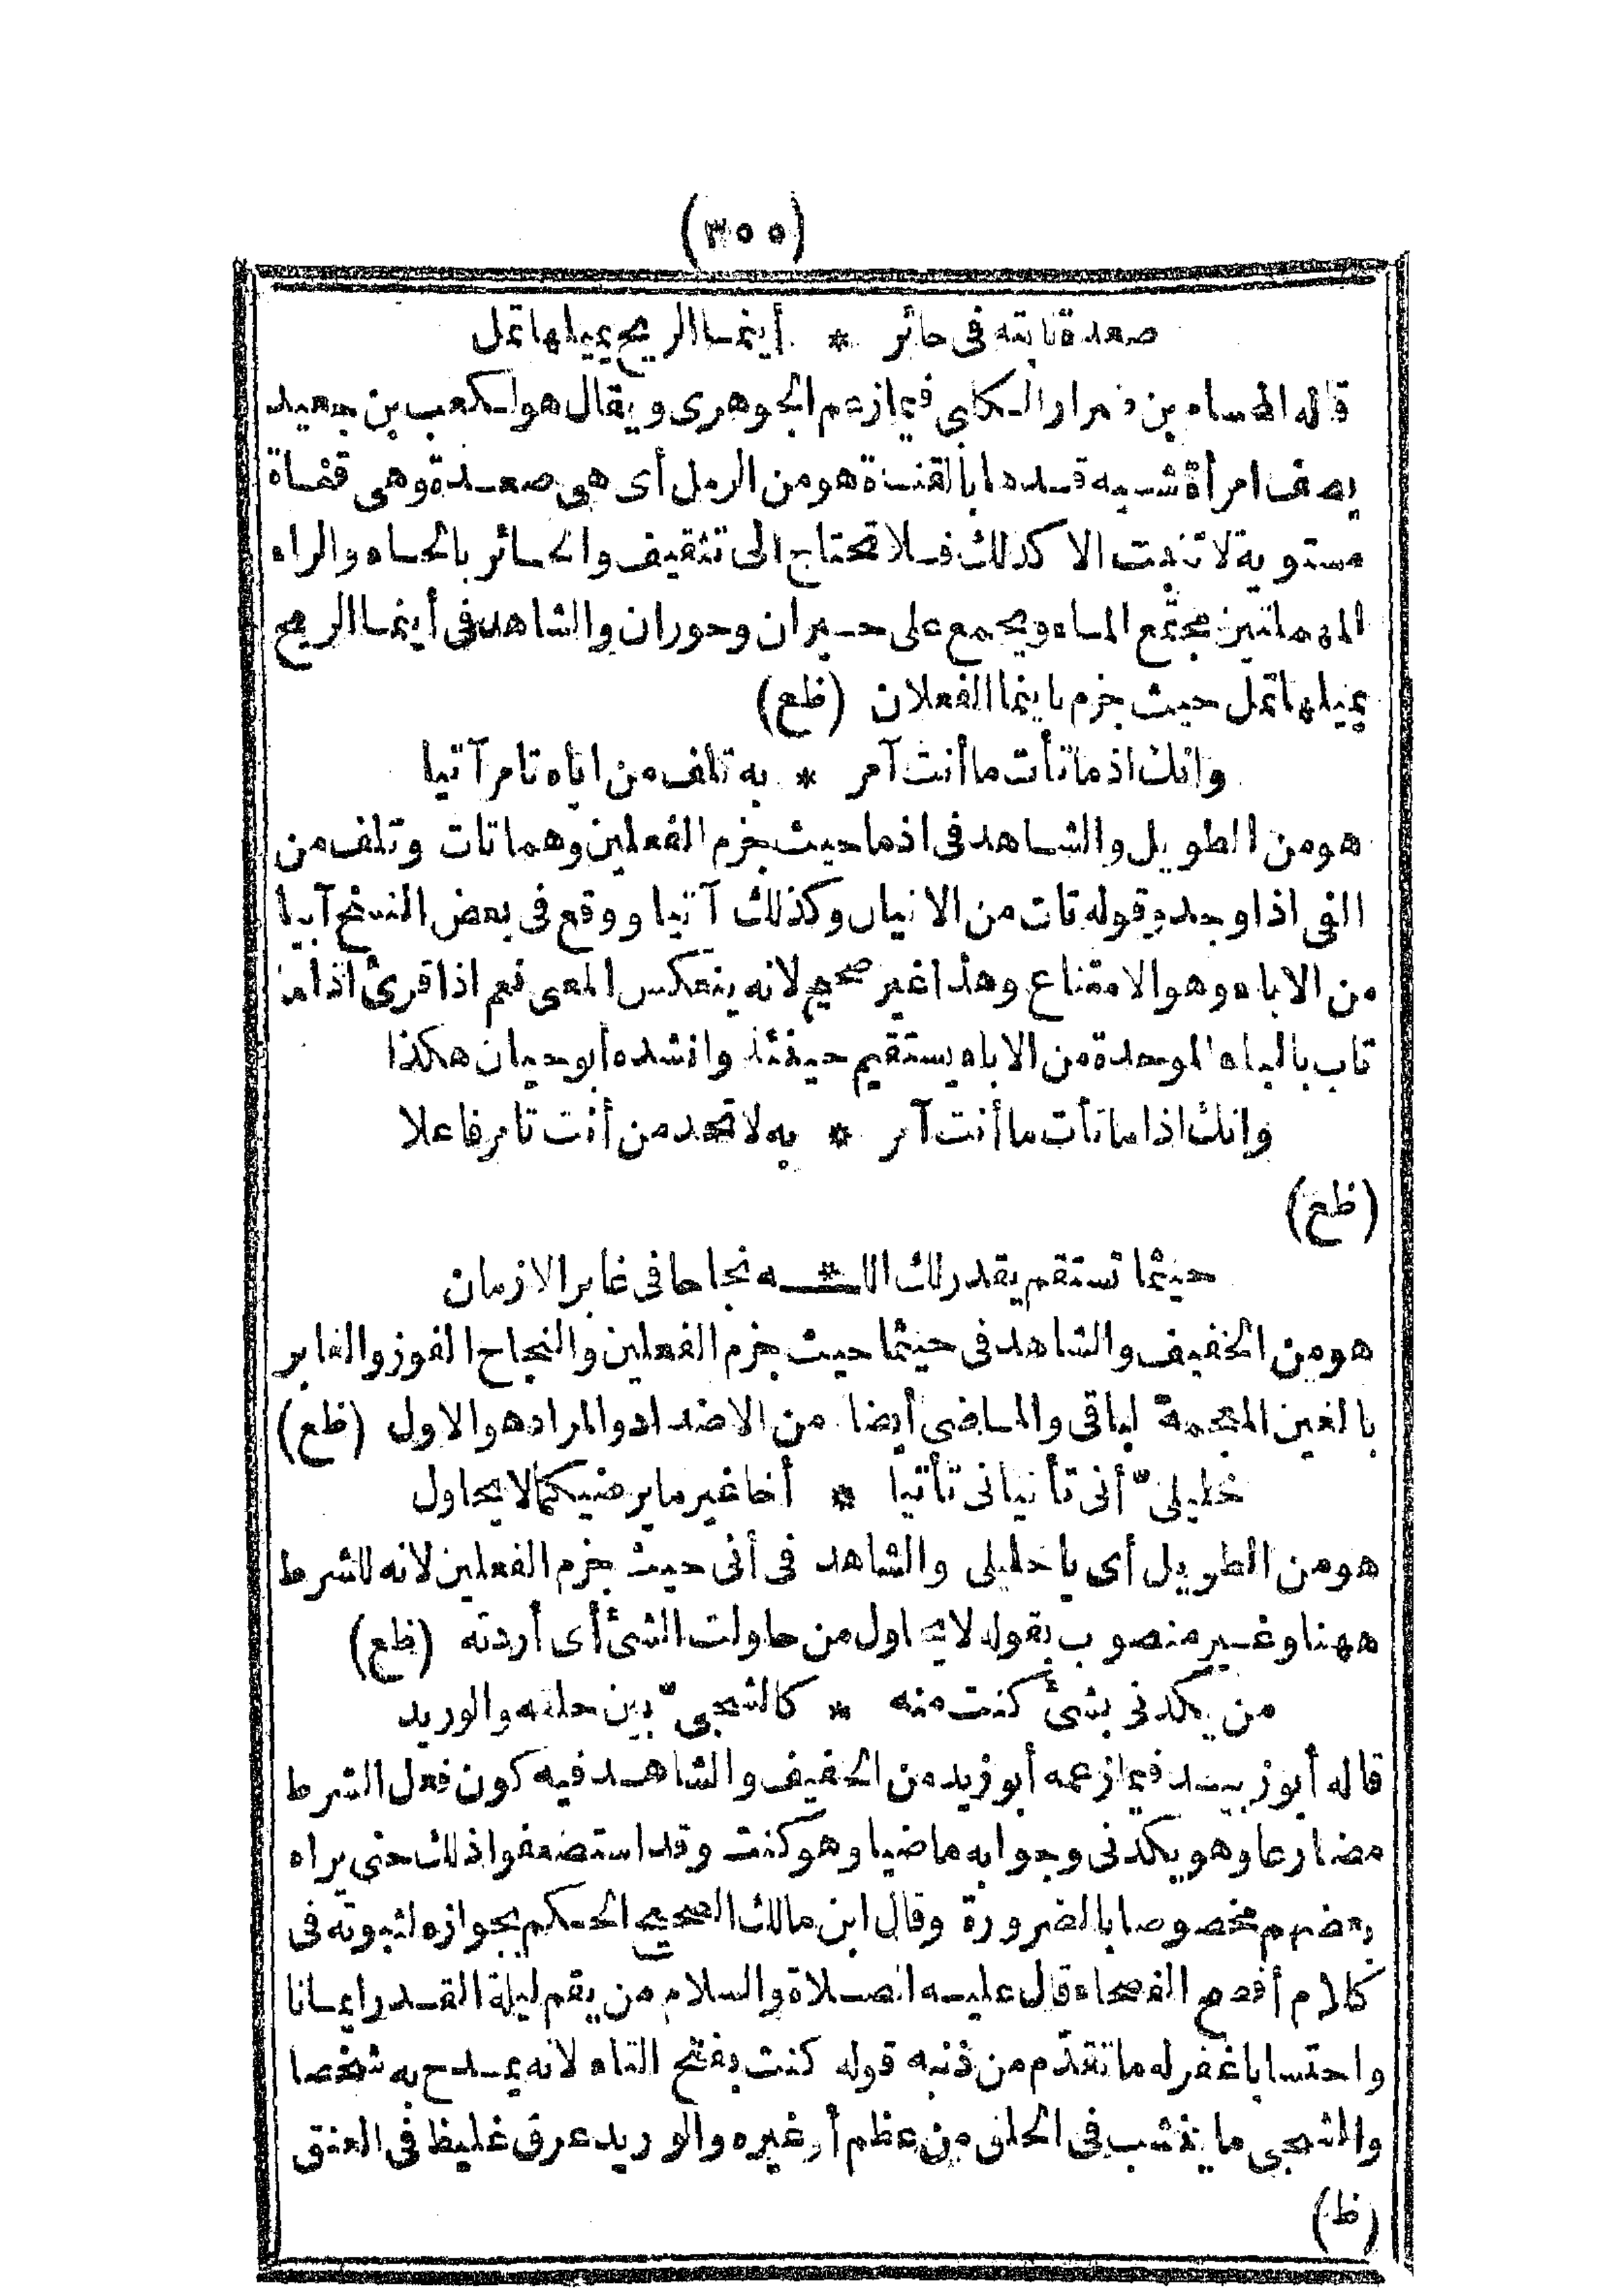 (٣٥٥)
صعدة نابتة فى حائر * أينما الريح يميلها تمل
قاله الحسام بن ضرار الكلبى فيما زعم الجوهرى ويقال هو لكعب بن جعيد
يصف امرأة شبه قدها بالقناة هو من الرمل أى هى صعدة وهى قناة
مستوية لا تنبت الا كذلك فلا تحتاج الى تثقيف والحائر بالحاء والراء
المهملتين مجتمع الماء ويجمع على حيران وحوران والشاهد فى أينما الريح
يميلها تمل حيث جزم باينما الفعلان (ظع)
وانك اذما تأت ما أنت آمر * به تلف من اياه تامر آتيا
هو من الطويل والشاهد فى اذما حيث جزم الفعلين وهما تات وتلف من
الفى اذا وجد وقوله تات من الاتيان وكذلك آتيا ووقع فى بعض النسخ آبيا
من الاباء وهو الامتناع وهذا غير صحيح لانه ينعكس المعنى نعم اذا قرئ اذما
تاب بالباء الموحدة من الاباء يستقيم حينئذ وانشده أبو حيان هكذا
وانك اذا ما تأت ما أنت آمر * به لا تجد من أنت تامر فاعلا
(ظع)
حيثما تستقم يقدر لك اللـ*ـه نجاحا فى غابر الازمان
هو من الخفيف والشاهد فى حيثما حيث جزم الفعلين والنجاح الفوز والغابر
بالغين المعجمة الباقى والماضى أيضا من الاضداد والمراد هو الاول (ظع)
خليلىّ أنى تأتيانى تأتيا * أخا غير ما يرضيكما لا يحاول
هو من الطويل أى يا خليلى والشاهد فى أنى حيث جزم الفعلين لانه للشرط
ههنا وغير منصوب بقوله لا يحاول من حاولت الشئ أى أردته (ظع)
من يكدنى بشئ كنت منه * كالشجىّ بين حلقه والوريد
قاله أبو زبيد فيما زعمه أبو زيد من الخفيف والشاهد فيه كون فعل الشرط
مضارعا وهو يكدنى وجوابه ماضيا وهو كنت وقد استضعفوا ذلك حتى يراه
بعضهم مخصوصا بالضرورة وقال ابن مالك الصحيح الحكم بجوازه لثبوته فى
كلام أفصح الفصحاء قال عليه الصلاة والسلام من يقم ليلة القدر ايمانا
واحتسابا غفر له ما تقدّم من ذنبه قوله كنت بفتح التاء لانه يمدح به شخصا
والشجى ما ينشب فى الحلق من عظم أو غيره والوريد عرق غليظ فى العنق
(ظ)